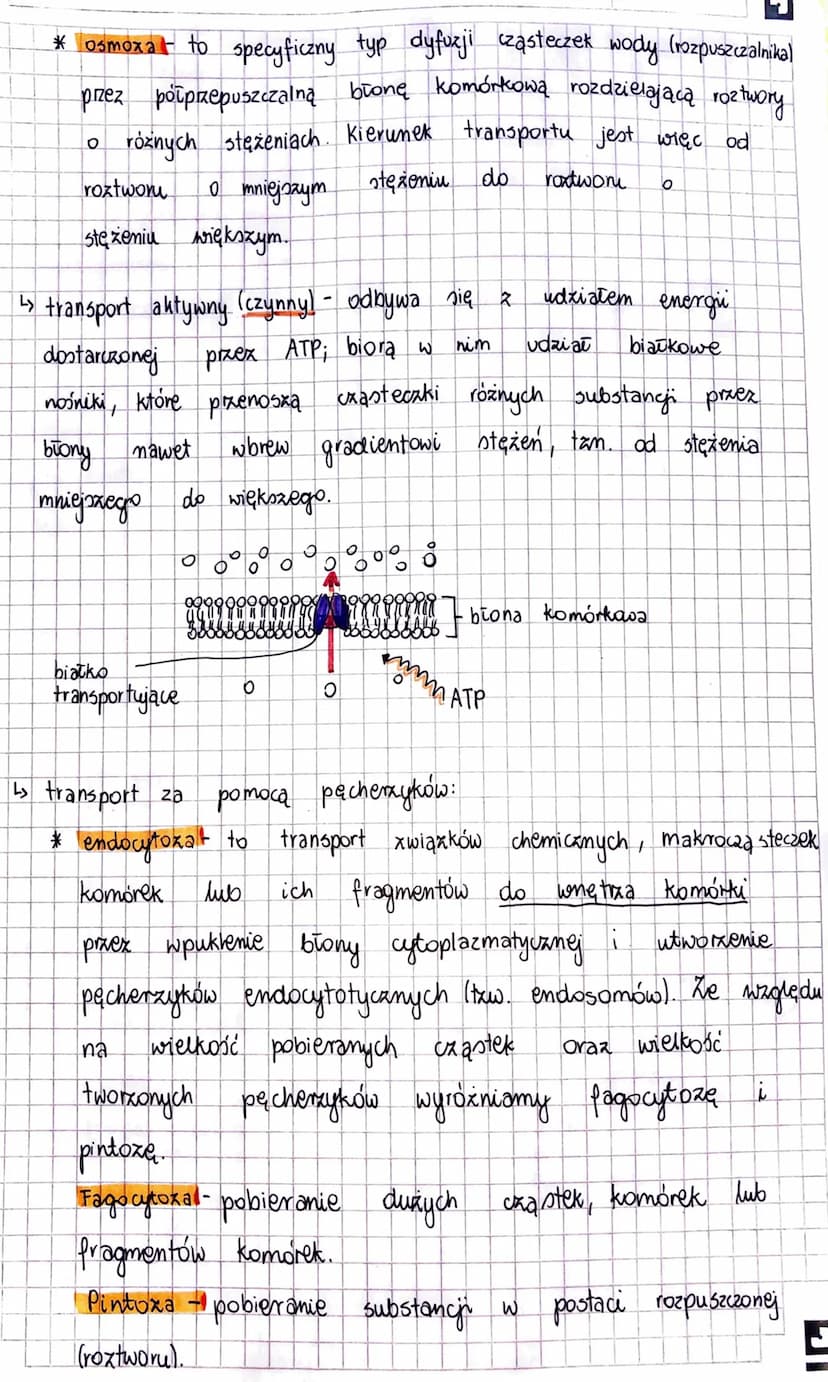 * osmoza - to specyficzny typ dyfuzji cząsteczek wody (rozpuszczalnika)
przez półprzepuszczalną błonę komórkową rozdzielającą roztwory
o różnych stężeniach. Kierunek transportu jest więc od
roztworu o mniejszym stężeniu do roztworu o
stężeniu większym.
↳ transport aktywny (czynny) - odbywa się z udziałem energii
dostarczonej przez ATP; biorą w nim udział białkowe
nośniki, które przenoszą cząsteczki różnych substancji przez
błony nawet wbrew gradientowi stężeń, tzn. od stężenia
mniejszego do większego.
błona komórkowa
białko
transportujące
ATP
↳ transport za pomocą pęcherzyków:
* endocytoza - to transport związków chemicznych, makrocząsteczek
komórek lub ich fragmentów do wnętrza komórki
przez wpuklenie błony cytoplazmatycznej i utworzenie
pęcherzyków endocytotycznych (tzw. endosomów). Ze względu
na wielkość pobieranych cząstek oraz wielkość
tworzonych pęcherzyków wyróżniamy fagocytozę i
pintozę.
Fagocytoza - pobieranie dużych cząstek, komórek lub
fragmentów komórek.
Pintoza - pobieranie substancji w postaci rozpuszczonej
(roztworu).